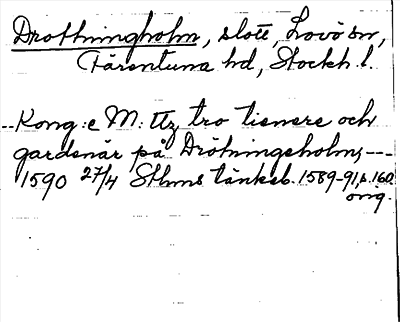 Drottningholm, slott, Lovö sn,
Färentuna hd, Stockh. l.
--Kong:e M:ttz tro tienere och
gardenär på Drötningeholm, ---
1590 27/4 Sthms tänkeb. 1589-91, s. 160
orig.